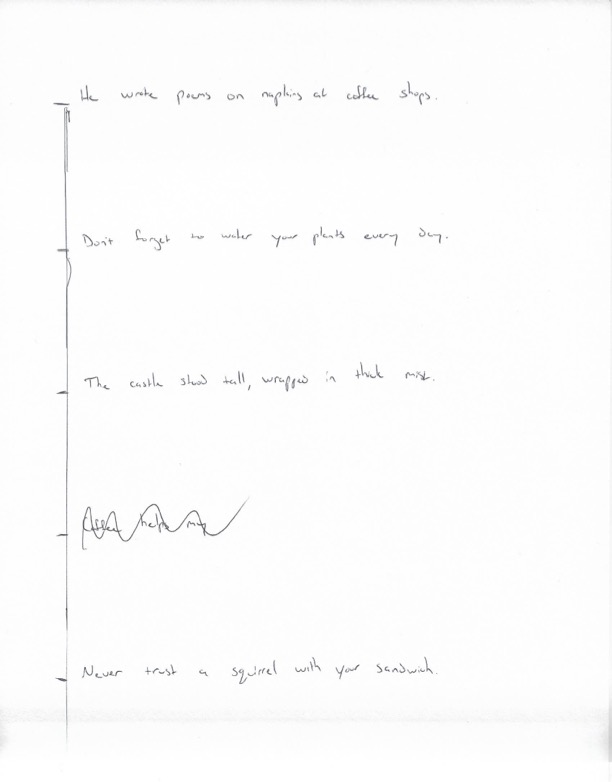 He wrote poems on napkins at coffee shops.
Don't forget to water your plants every day.
The castle stood tall, wrapped in thick mist.
Never trust a squirrel with your sandwich.